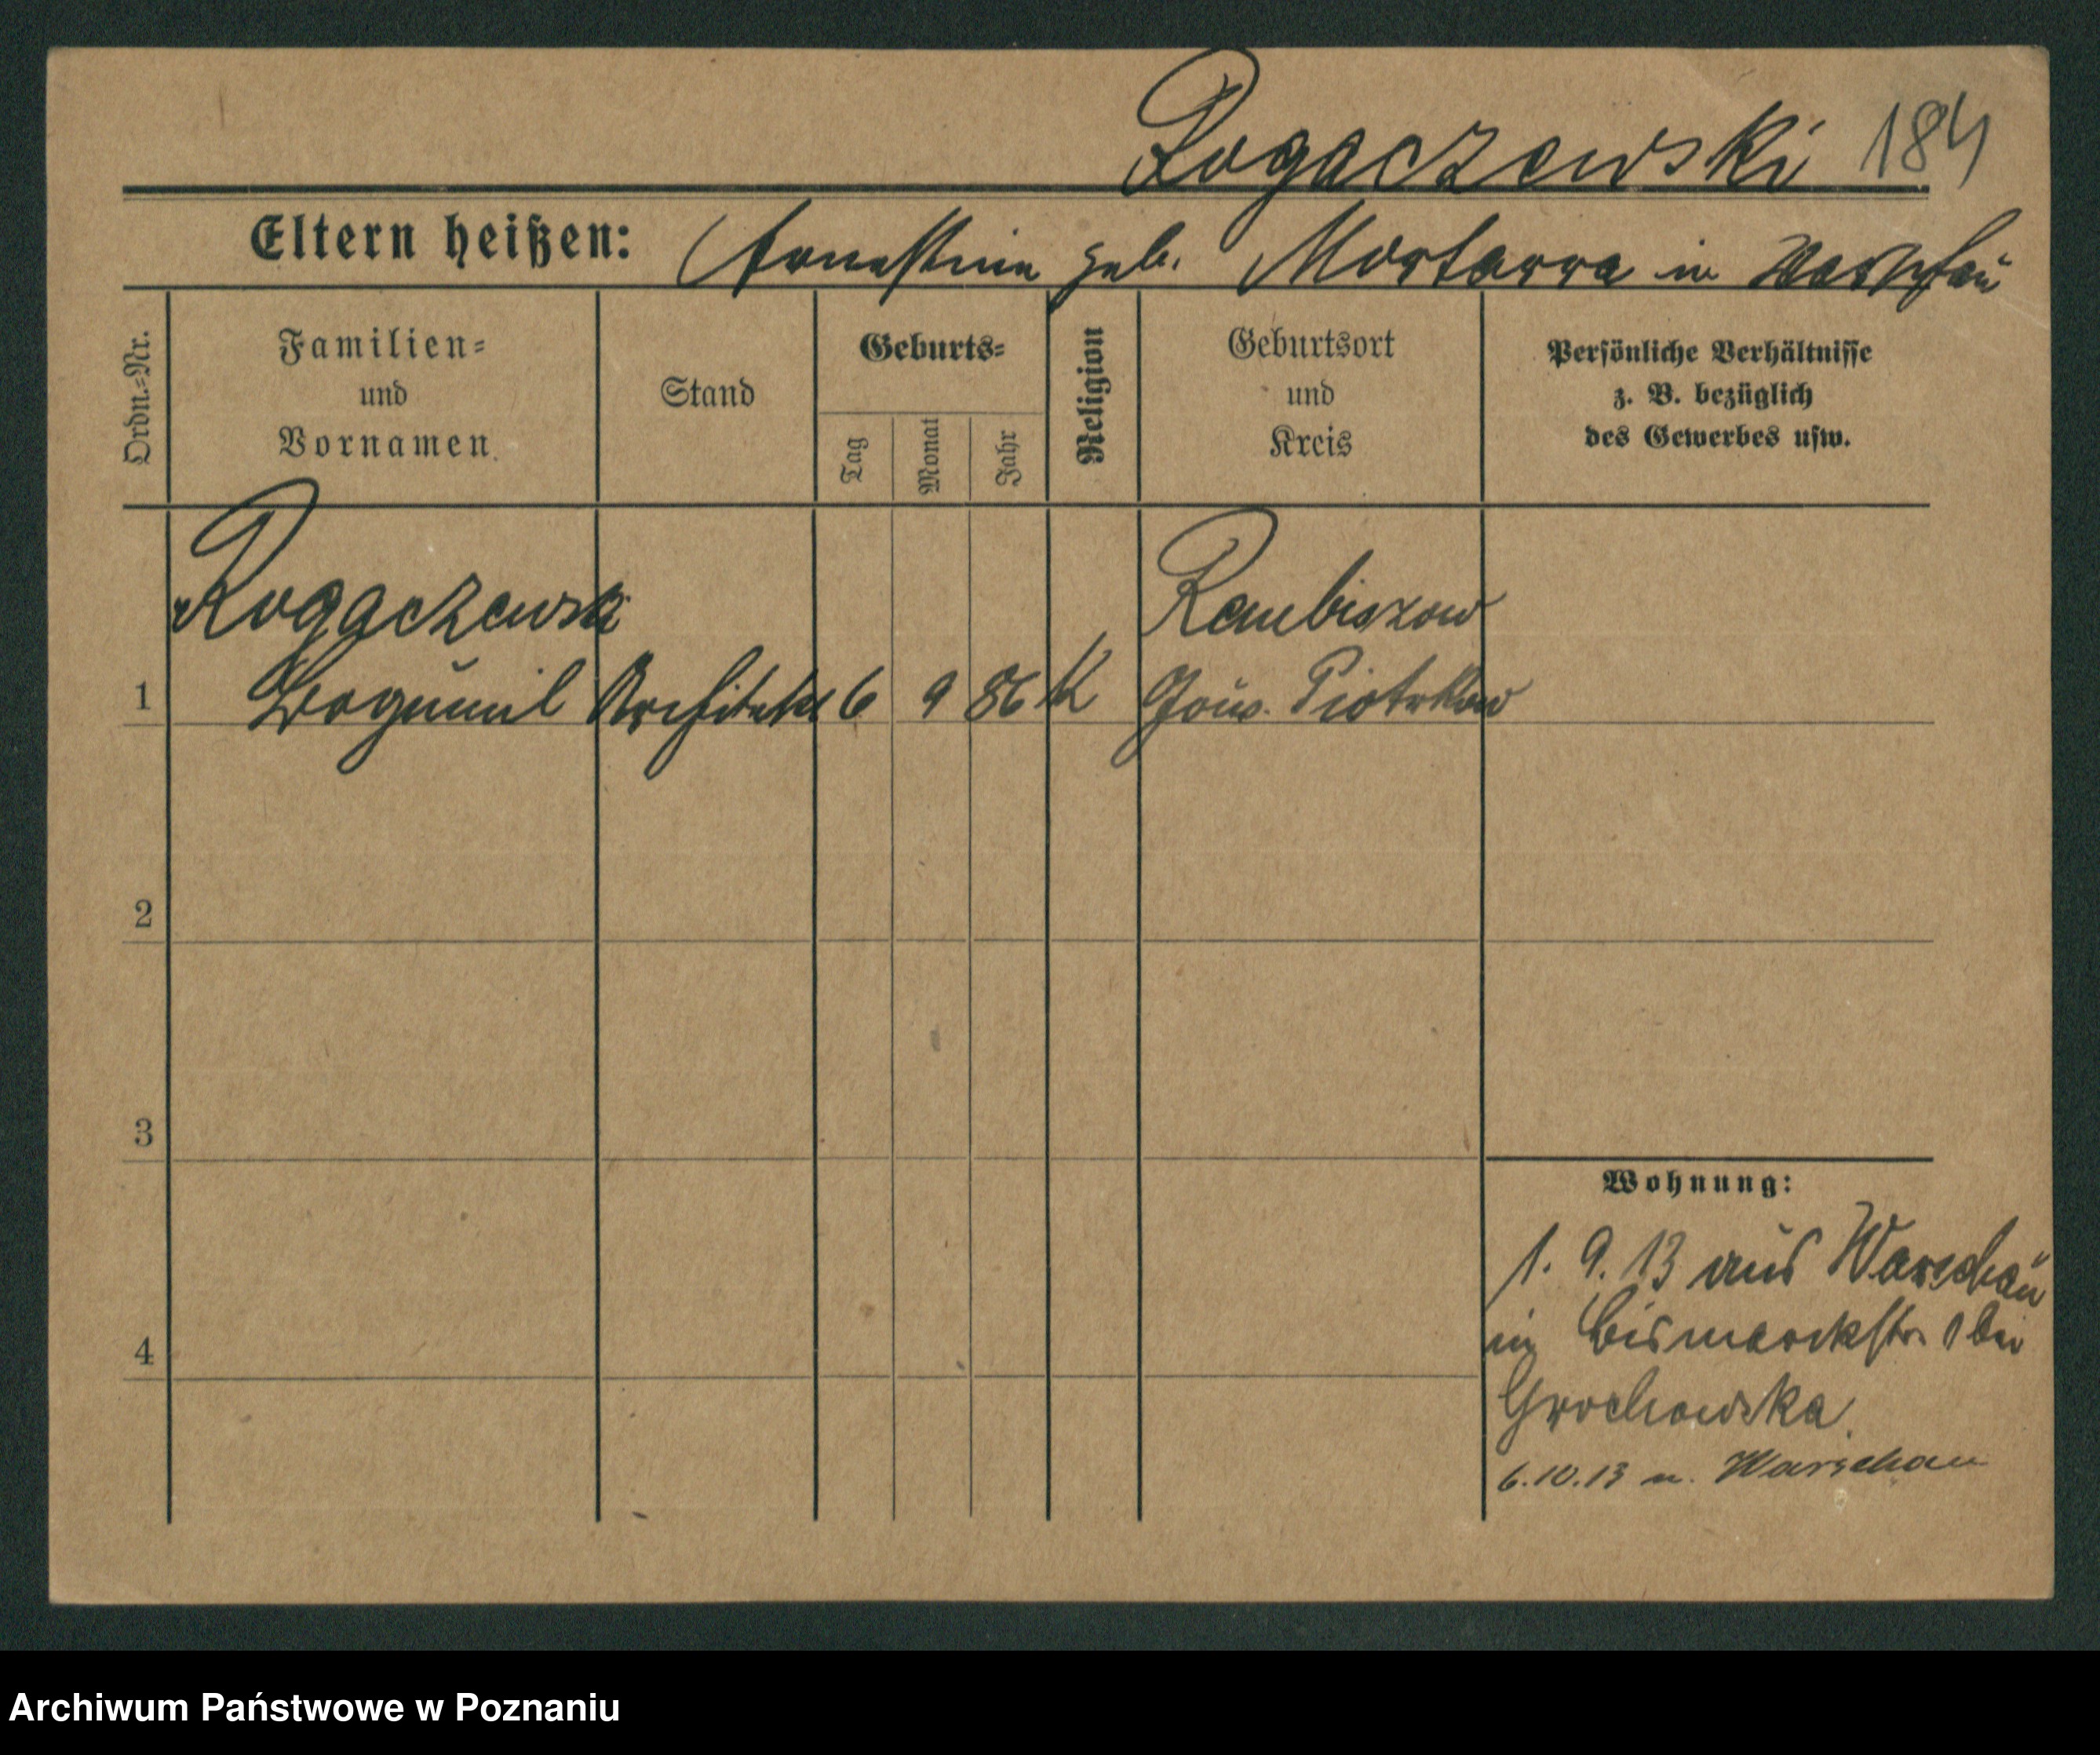 Rogaczewski 184
Eltern heißen: Ernestine geb. Mortarra in Warschau
Ordn.=Nr.
Familien=
und
Vornamen.
Stand
Geburts=
Tag
Monat
Jahr
Religion
Geburtsort
und
Kreis
Persönliche Verhältnisse
z. B. bezüglich
des Gewerbes usw.
Rogaczewski Rembiszow
1 Bogumil Architekt 6 9 86 K Gouv. Piotrkow
2
3
4
Wohnung:
1. 9. 13 aus Warschau
in Bismarckstr. 1 bei
Grochowska
6.10.13 n. Warschau
Archiwum Państwowe w Poznaniu